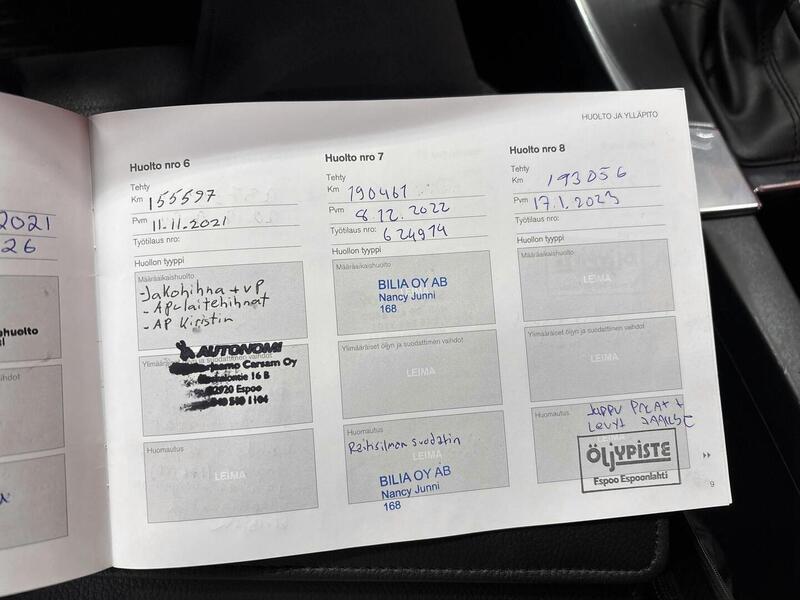 HUOLTO JA YLLÄPITO
2021
26
huolto
Huolto nro 6
Tehty
Km 155597
Pvm 11.11.2021
Työtilaus nro:
Huollon tyyppi
Määräaikaishuolto
-Jakohihna + VP
-Apulaitehihnat
-AP Kiristin
Ylimääräiset öljyn ja suodattimen vaihdot
AUTONOMI
Carsam Oy
16 B
02920 Espoo
040 510 1104
Huomautus
LEIMA
Huolto nro 7
Tehty
Km 190461
Pvm 8.12.2022
Työtilaus nro: 624914
Huollon tyyppi
Määräaikaishuolto
BILIA OY AB
Nancy Junni
168
Ylimääräiset öljyn ja suodattimen vaihdot
LEIMA
Huomautus
Raitisilman suodatin
LEIMA
BILIA OY AB
Nancy Junni
168
Huolto nro 8
Tehty
Km 193056
Pvm 17.1.2023
Työtilaus nro:
Huollon tyyppi
Määräaikaishuolto
LEIMA
Ylimääräiset öljyn ja suodattimen vaihdot
LEIMA
Huomautus
Jarru
Levyt
ÖLJYPISTE
Espoo Espoonlahti
9